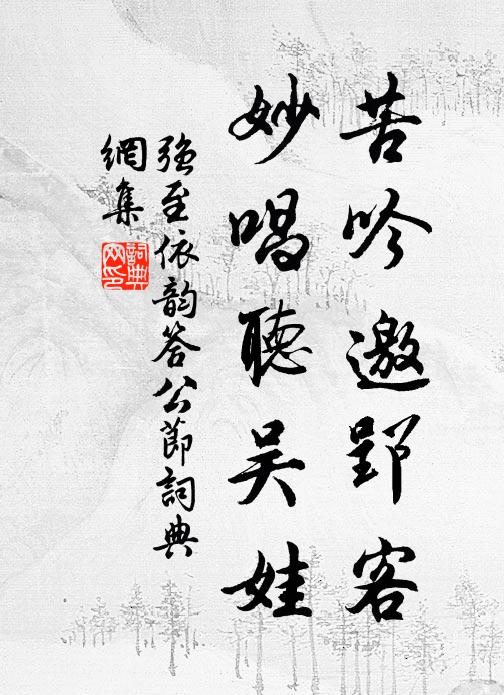 苦吟邀郢客
妙唱聽吳娃
強至依韵答公節詞典
網集
詞典
网印